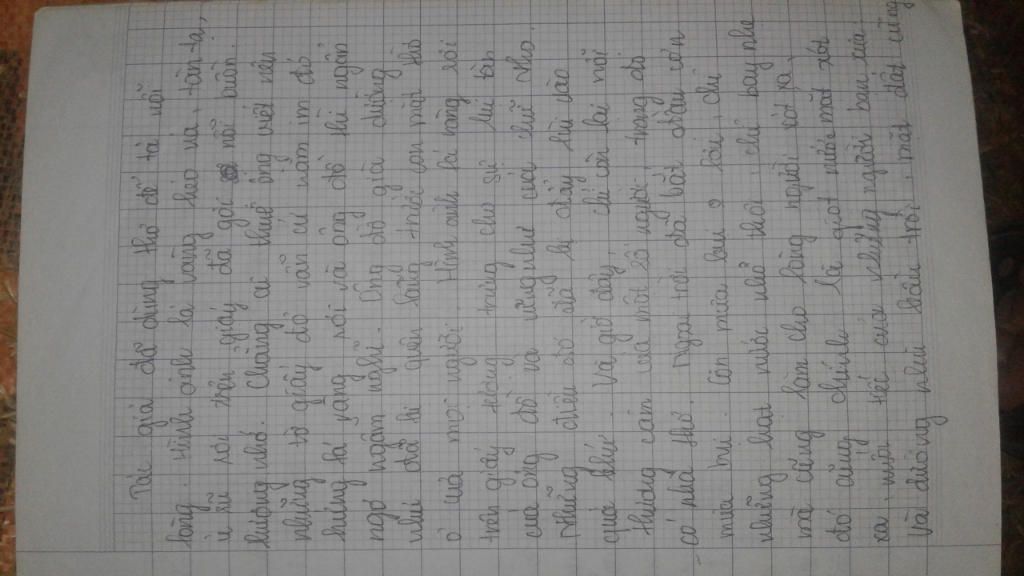 Tác giả đã dùng thơ để tả nỗi
lòng. Hình ảnh lá vàng héo úa, tàn tạ,
ủ rũ rơi trên giấy đã gợi nỗi buồn
thương nhớ. Chẳng ai thuê ông viết nên
những tờ giấy đỏ vẫn cứ nằm im đó
hứng lá vàng rơi và ông đồ thì ngồi
ngơ ngẩn nghĩ. Ông đồ già dường
như đã bị quên lãng trước con mắt thờ
ơ của mọi người. Hình ảnh lá vàng rơi
trên giấy tượng trưng cho sự lụi tàn
của ông đồ và cũng như của chữ nho.
Những điều đó đã bị đẩy lùi vào
quá khứ. Và giờ đây, chỉ còn lại nỗi
thương cảm của một số người, trong đó
có nhà thơ. Ngoài trời đã bắt đầu cơn
mưa bụi. Cơn mưa bay, chỉ
những hạt nước nhỏ thôi, chỉ bay nhẹ
mà cũng làm cho lòng người xót xa,
đó cũng chính là giọt nước mắt xót
xa, nuối tiếc của những người bạn của
Và đường phố, trời, mặt đất cũng